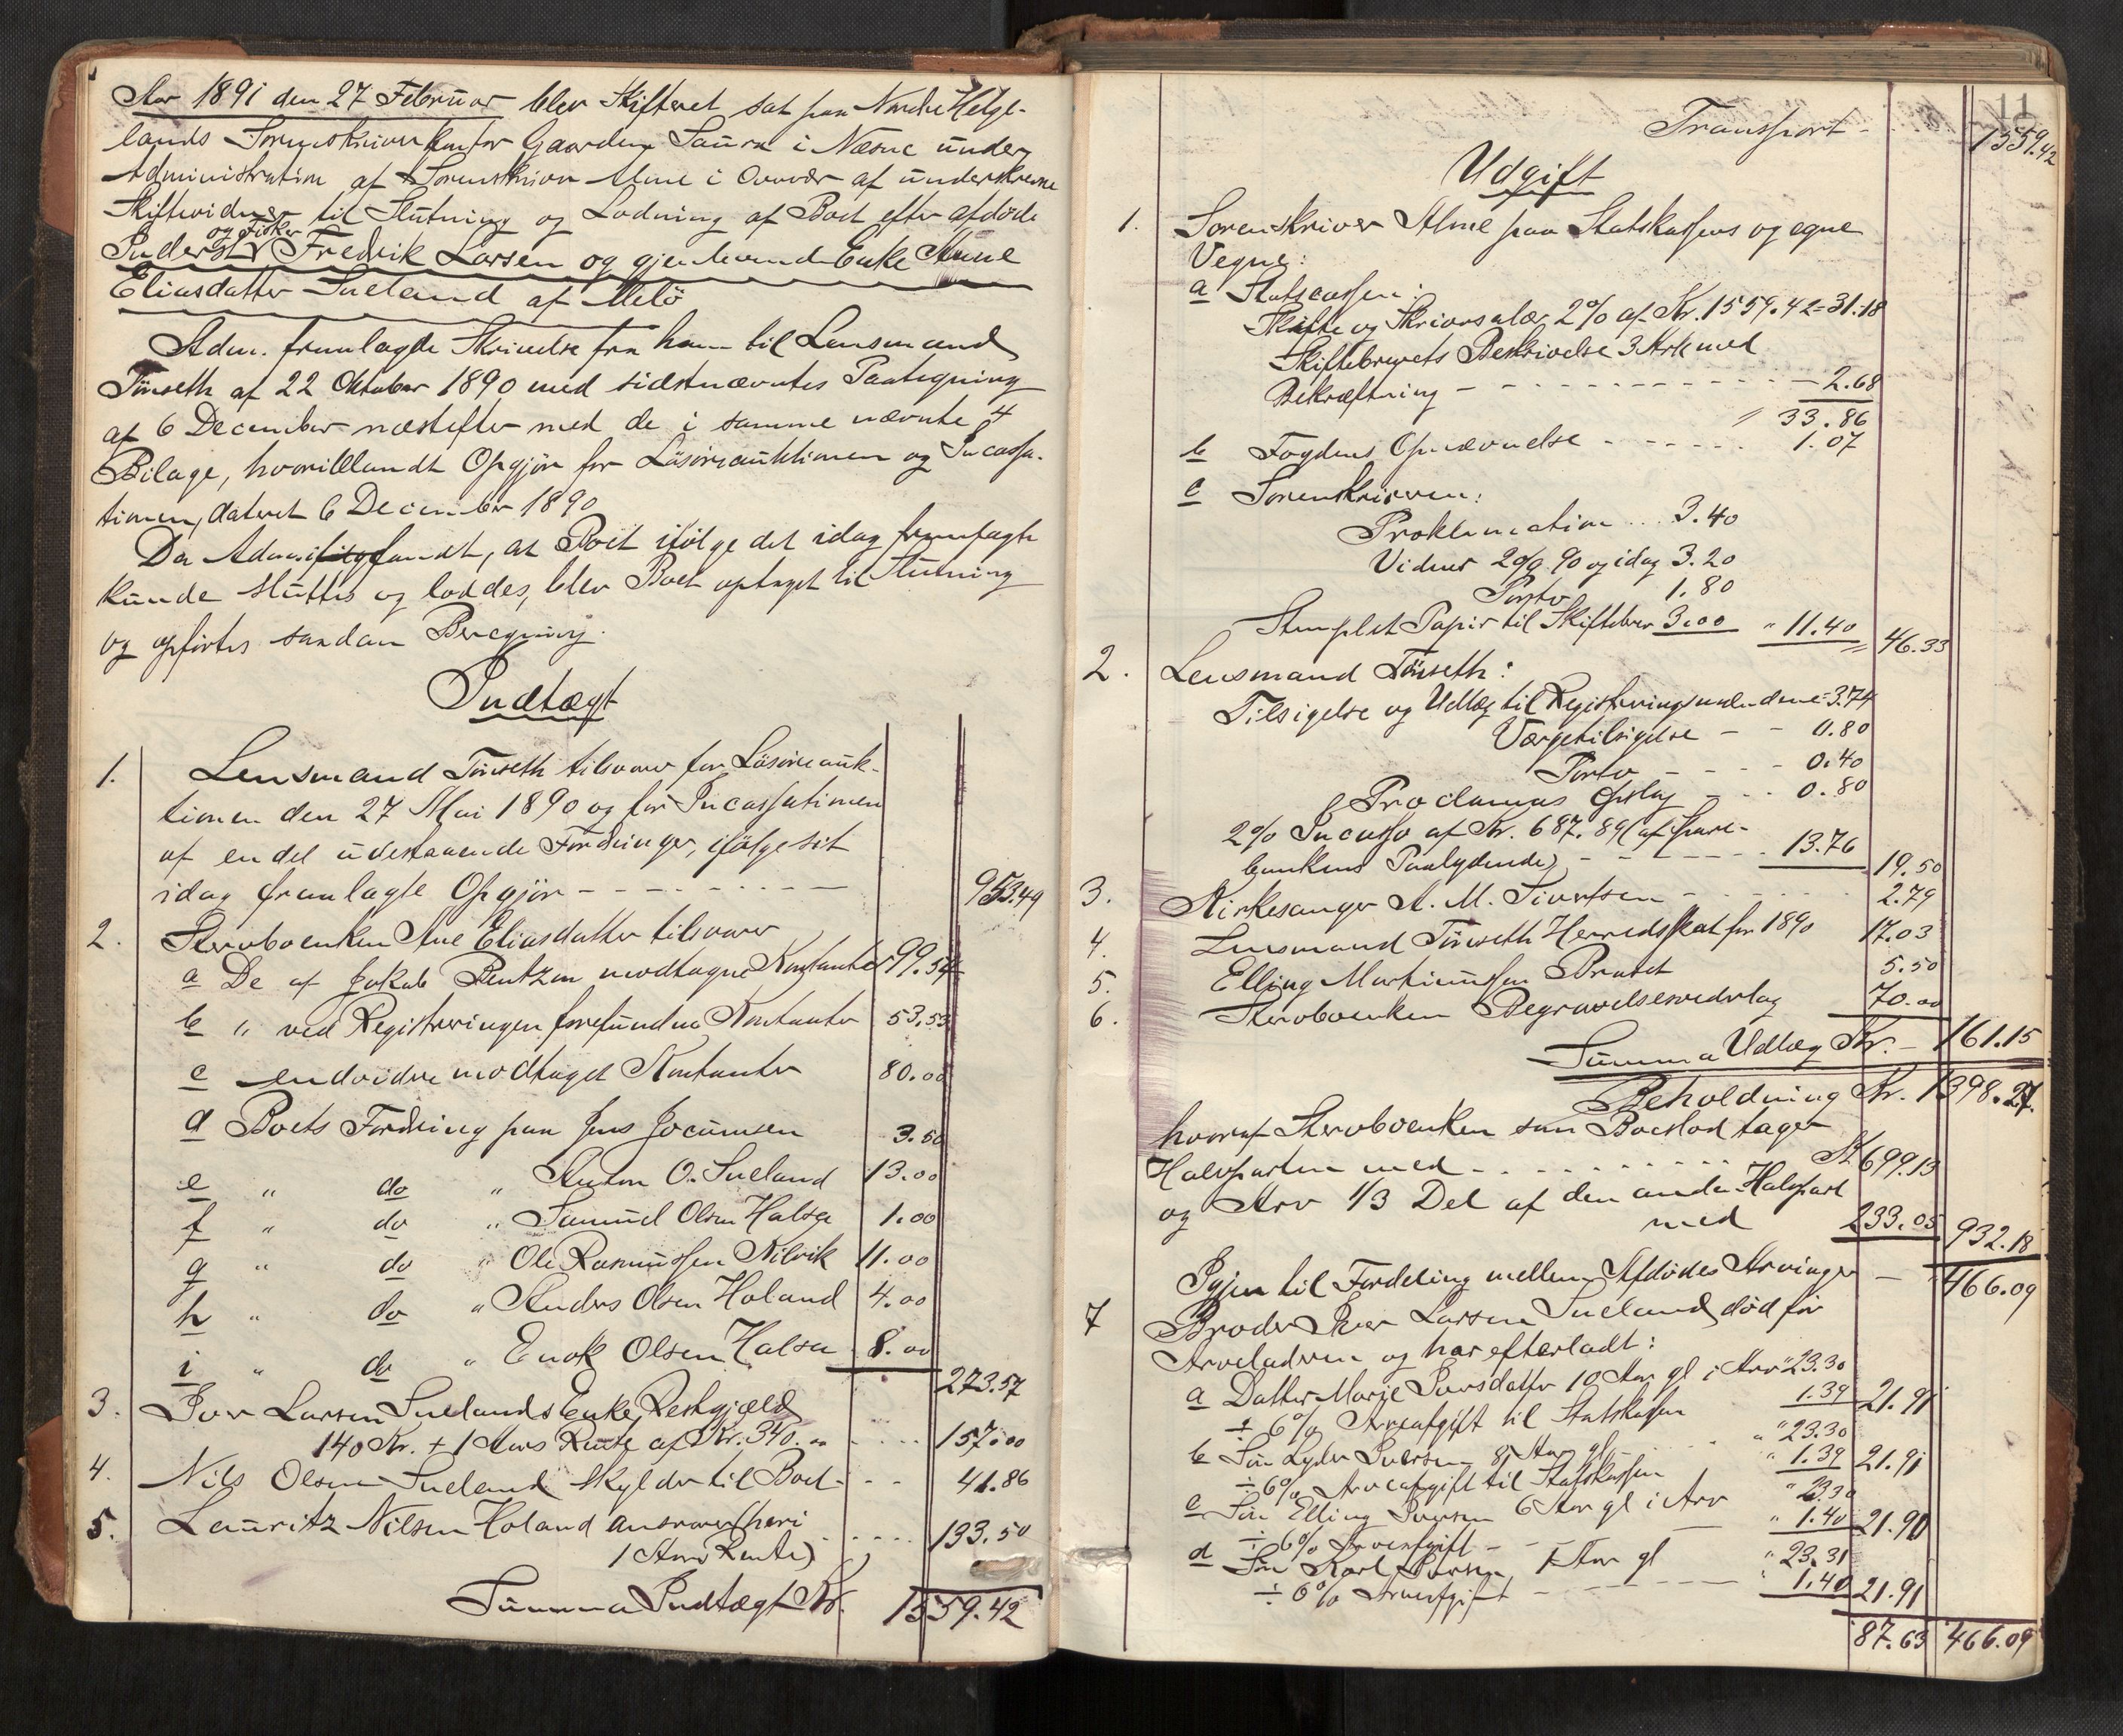 Aar 1891 den 27 Februar blev Skifteret sat paa Nordre Helge-
lands Sorenskriverkontor Gaarden Saura i Næsne under
Administration af Sorenskriver Alme i Overvær af underskrevne
Skiftevidner til Slutning og Lodning af Boet efter afdøde
og Fisker
Inderst Fredrik Larsen og gjenlevende Enke Anne
Eliasdatter Sneland af Melö
Adm. fremlagde Skrivelse fra ham til Lensmand
Tönseth af 22 Oktober 1890 med sidstnævntes Paategning
af 6 December næstefter med de i samme nævnte 4
Bilage, hvoriblandt Opgjör for Lösöreauktionen og Incassa-
tionen, dateret 6 December 1890
Da Adm. fandt, at Boet ifölge det idag fremlagte
kunde sluttes og loddes, blev Boet optaget til Slutning
og opförtes saadan Beregning.
Indtægt
1. Lensmand Tönseth tilsvarer for Lösöreauk-
tionen den 27 Mai 1890 og for Incassationen
af en del udestaaende Fordringer, ifölge sit
idag fremlagte Opgjör - - - - - - 953.49
2. Stervboenken Ane Eliasdatter tilsvarer
a De af Jakob Bentzen modtagne Kontanter 99.54
b " ved Registreringen forefundne Kontanter 53.53
c endvidere modtaget Kontanter 80.00
d Boets Fordring paa Jens Jocumsen 3.50
e " do " Anton O. Sneland 13.00
f " do " Samuel Olsen Halsa 1.00
g " do " Ole Rasmussen Kilvik 11.00
h " do " Anders Olsen Holand 4.00
i " do " Enok Olsen Halsa 8.00
273.57
3. Iver Larsen Snelands Enke, Restgjæld
140 Kr. + 1 Aars Rente af Kr. 340.00 - - - - 157.00
4. Nils Olsen Sneland skylder til Boet - - - 41.86
5. Lauritz Nilsen Holand ansvarer (heri
1 Aars Rente) . . . . 133.50
Summa Indtægt Kr. 1559.42
11
Transport - 1559.42
Udgift
1. Sorenskriver Alme paa Statskassens og egne
Vegne:
a Statscassen:
Skifte og Skriversalær 2% af Kr. 1559.42 = 31.18
Skiftebrevets Beskrivelse 3 Ark med
Bekræftning - - - - - - - 2.68
" 33.86
b Fogdens Opnævnelse - - - - - 1.07
c Sorenskriveren:
Proklamation ... 3.40
Vidner 20/9 90 og idag 3.20
Porto 1.80
Stemplet Papir til Skiftebrev 3.00 " 11.40 46.33
2. Lensmand Tönseth:
Tilsigelse og Udlæg til Registreringsmændene = 3.74
Værgetilsigelse - - 0.80
Porto - - - - 0.40
Proclamas Opslag - - - 0.80
2% Incasso af Kr. 687.89 (af Spare-
bankens Paalydende) - - - - - 13.76 19.50
3. Kirkesanger A. M. Sivertsen - - - - 2.79
4. Lensmand Tönseth Herredsskat for 1890 17.03
5. Elling Martinussen Bratset 5.50
6. Stervboenken Begravelsesvederlag 70.00
Summa Udlæg Kr. - 161.15
Beholdning Kr. 1398.27.
hvoraf Stervboenken som Boeslod tager
Halvparten med - - - - - - - Kr 699.13
og Arv 1/3 Del af den anden Halvpart
med 233.05 932.18
Igjen til Fordeling mellem Afdödes Arvinger - 466.09
7 Broder Iver Larsen Sneland, död för
Arveladeren og har efterladt:
a Datter Marie Iversdatter 10 Aar gl i Arv " 23.30
÷ 6% Arveafgift til Statskassen 1.39 21.91
b Sön Lyder Iversen 8 Aar gl - - - " 23.30
÷ 6% Arveafgift til Statskassen " 1.39 21.91
c Sön Elling Iversen 6 Aar gl i Arv " 23.30
÷ 6% Arveafgift - - " 1.40 21.90
d Sön Karl Iversen 1 Aar gl " 23.31
÷ 6% Arveafgift - - - - - 1.40 21.91
87.63 466.09